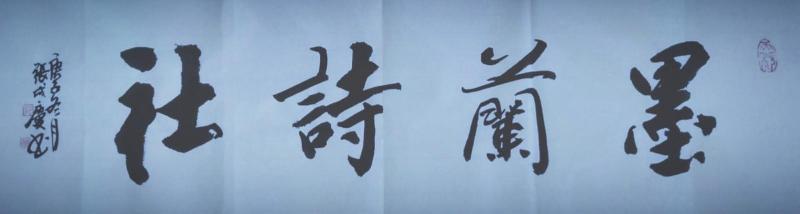 墨蘭詩社
庚子冬月
張成慶书